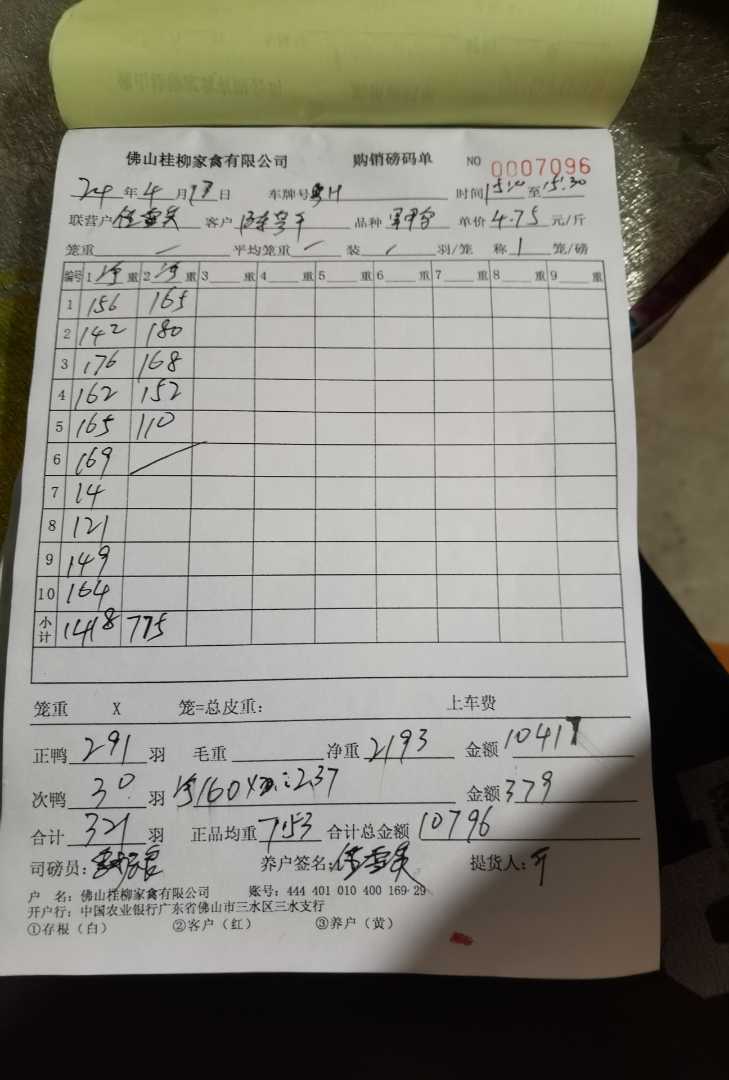 佛山桂柳家禽有限公司 购销磅码单 NO 0007096
24年4月17日 车牌号 时间15:10至15:30
联营户 客户 品种 单价4.75元/斤
笼重 平均笼重 装 羽/笼 称1笼/磅
编号 1净重 2净重 3重 4重 5重 6重 7重 8重 9重
1 156 165
2 142 180
3 176 168
4 162 152
5 165 110
6 169
7 14
8 121
9 149
10 164
小计 1418 775
笼重 X 笼=总皮重: 上车费
正鸭291羽 毛重 净重2193 金额10417
次鸭30羽 净160X 2.37 金额379
合计321羽 正品均重7.53 合计总金额10796
司磅员: 养户签名: 提货人:
户 名: 佛山桂柳家禽有限公司 账号: 444 401 010 400 169 29
开户行: 中国农业银行广东省佛山市三水区三水支行
①存根(白) ②客户(红) ③养户(黄)